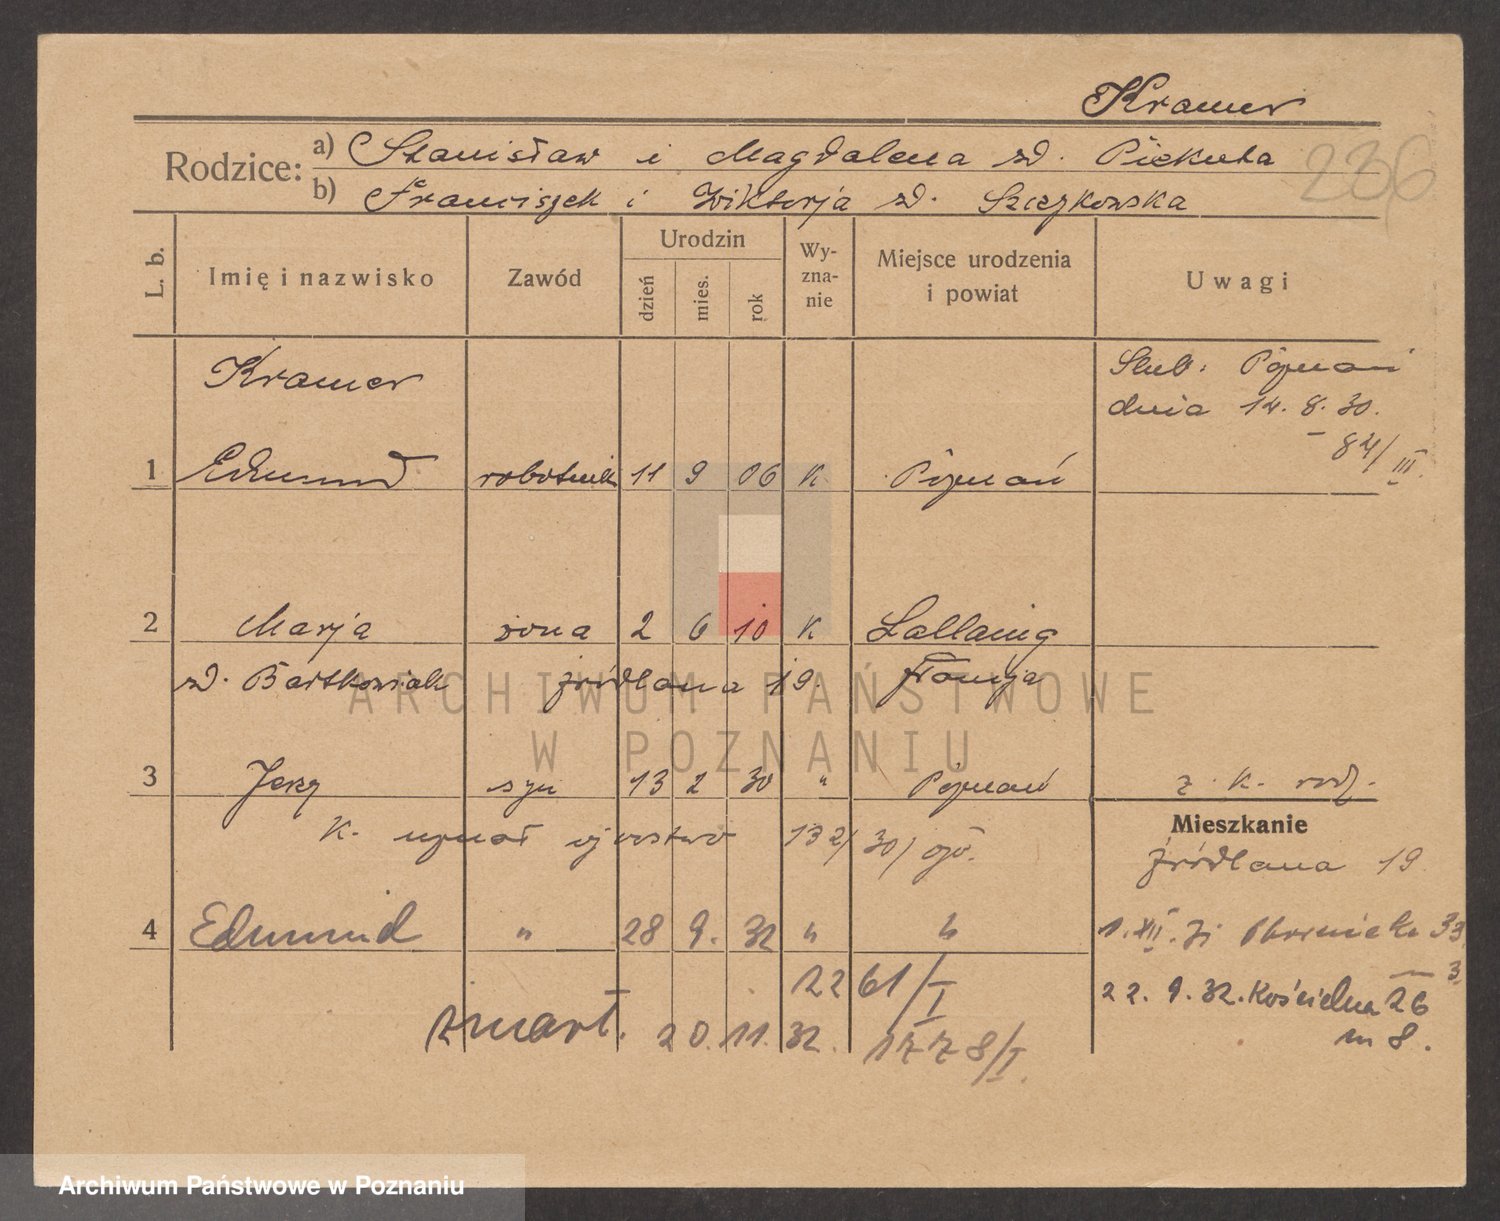 Kramer
Rodzice: a) Stanisław i Magdalena zd. Piekuta
b) Franciszek i Wiktorja zd. Szczykowska
236
L. b.
Imię i nazwisko
Zawód
Urodzin
dzień
mies.
rok
Wy-
zna-
nie
Miejsce urodzenia
i powiat
Uwagi
Kramer
Ślub. Poznań
dnia 14. 8. 30.
- 84/III.
1 Edmund robotnik 11 9 06 K Poznań
2 Marja żona 2 6 10 K Lallaing
zd. Bartkowiak Źródlana 19. Francja
3 Jerzy syn 13 2 30 " Poznań z. k. rodz.
K. uznał ojcostwo 132/30/ojc.
Mieszkanie
Źródlana 19
4 Edmund " 28 9. 32 " "
1. XII. 31 33
3
2261/I
22. 9. 32. Kościelna 26
m 8.
zmarł. 20. 11. 32. 1778/I.
ARCHIWUM PAŃSTWOWE
W POZNANIU
Archiwum Państwowe w Poznaniu